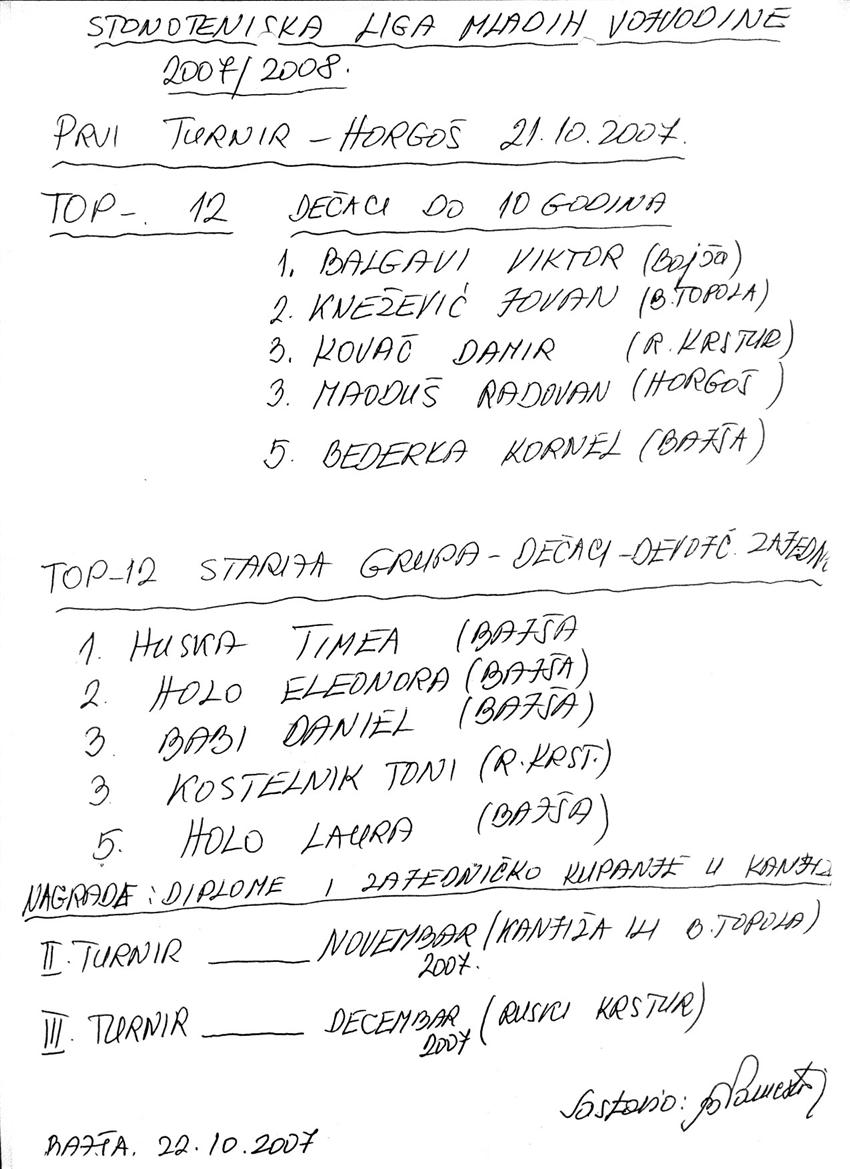 STONOTENISKA LIGA MLADIH VOJVODINE
2007/2008.
PRVI TURNIR – HORGOŠ 21.10.2007.
TOP-. 12 DEČACI DO 10 GODINA
1. BALGAVI VIKTOR (Bajša)
2. KNEŽEVIĆ JOVAN (B.TOPOLA)
3. KOVAČ DAMIR (R.KRSTUR)
3. MAODUŠ RADOVAN (HORGOŠ)
5. BEDERKA KORNEL (BAJŠA)
TOP-12 STARIJA GRUPA - DEČACI - DEVOJČ. ZAJEDN
1. HUSKA TIMEA (BAJŠA
2. HOLO ELEONORA (BAJŠA)
3. BABI DANIEL (BAJŠA)
3 KOSTELNIK TONI (R.KRST.)
5. HOLO LAURA (BAJŠA)
NAGRADE: DIPLOME I ZAJEDNIČKO KUPANJE U KANJIŽ
II. TURNIR ______ NOVEMBAR (KANJIŽA ILI B.TOPOLA)
2007.
III. TURNIR ______ DECEMBAR (RUSKI KRSTUR)
2007
Sostavio:
BAJŠA. 22.10.2007